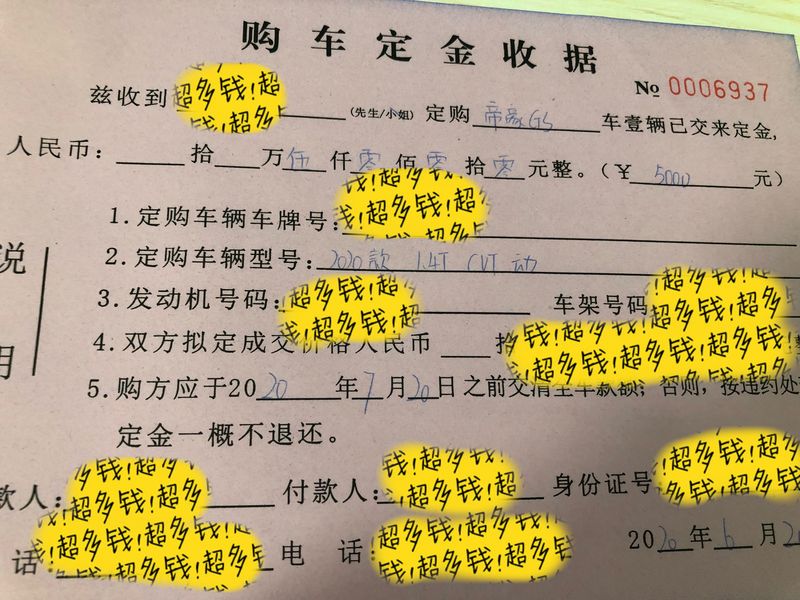 购车定金收据
No 0006937
兹收到超多钱!超多钱!超(先生/小姐)定购帝豪GS车壹辆已交来定金,
人民币：拾万伍仟零佰零拾零元整。(￥5000元)
1.定购车辆车牌号：钱!超多钱!超多
2.定购车辆型号：2020款 1.4T CVT 动
3.发动机号码：超多钱!超多钱!超 车架号码
4.双方拟定成交价格人民币
5.购方应于2020年7月20日之前交清全车款额；否则，按违约处
定金一概不退还。
款人： 付款人： 身份证号
话： 电 话：
2020年6月2
说
明